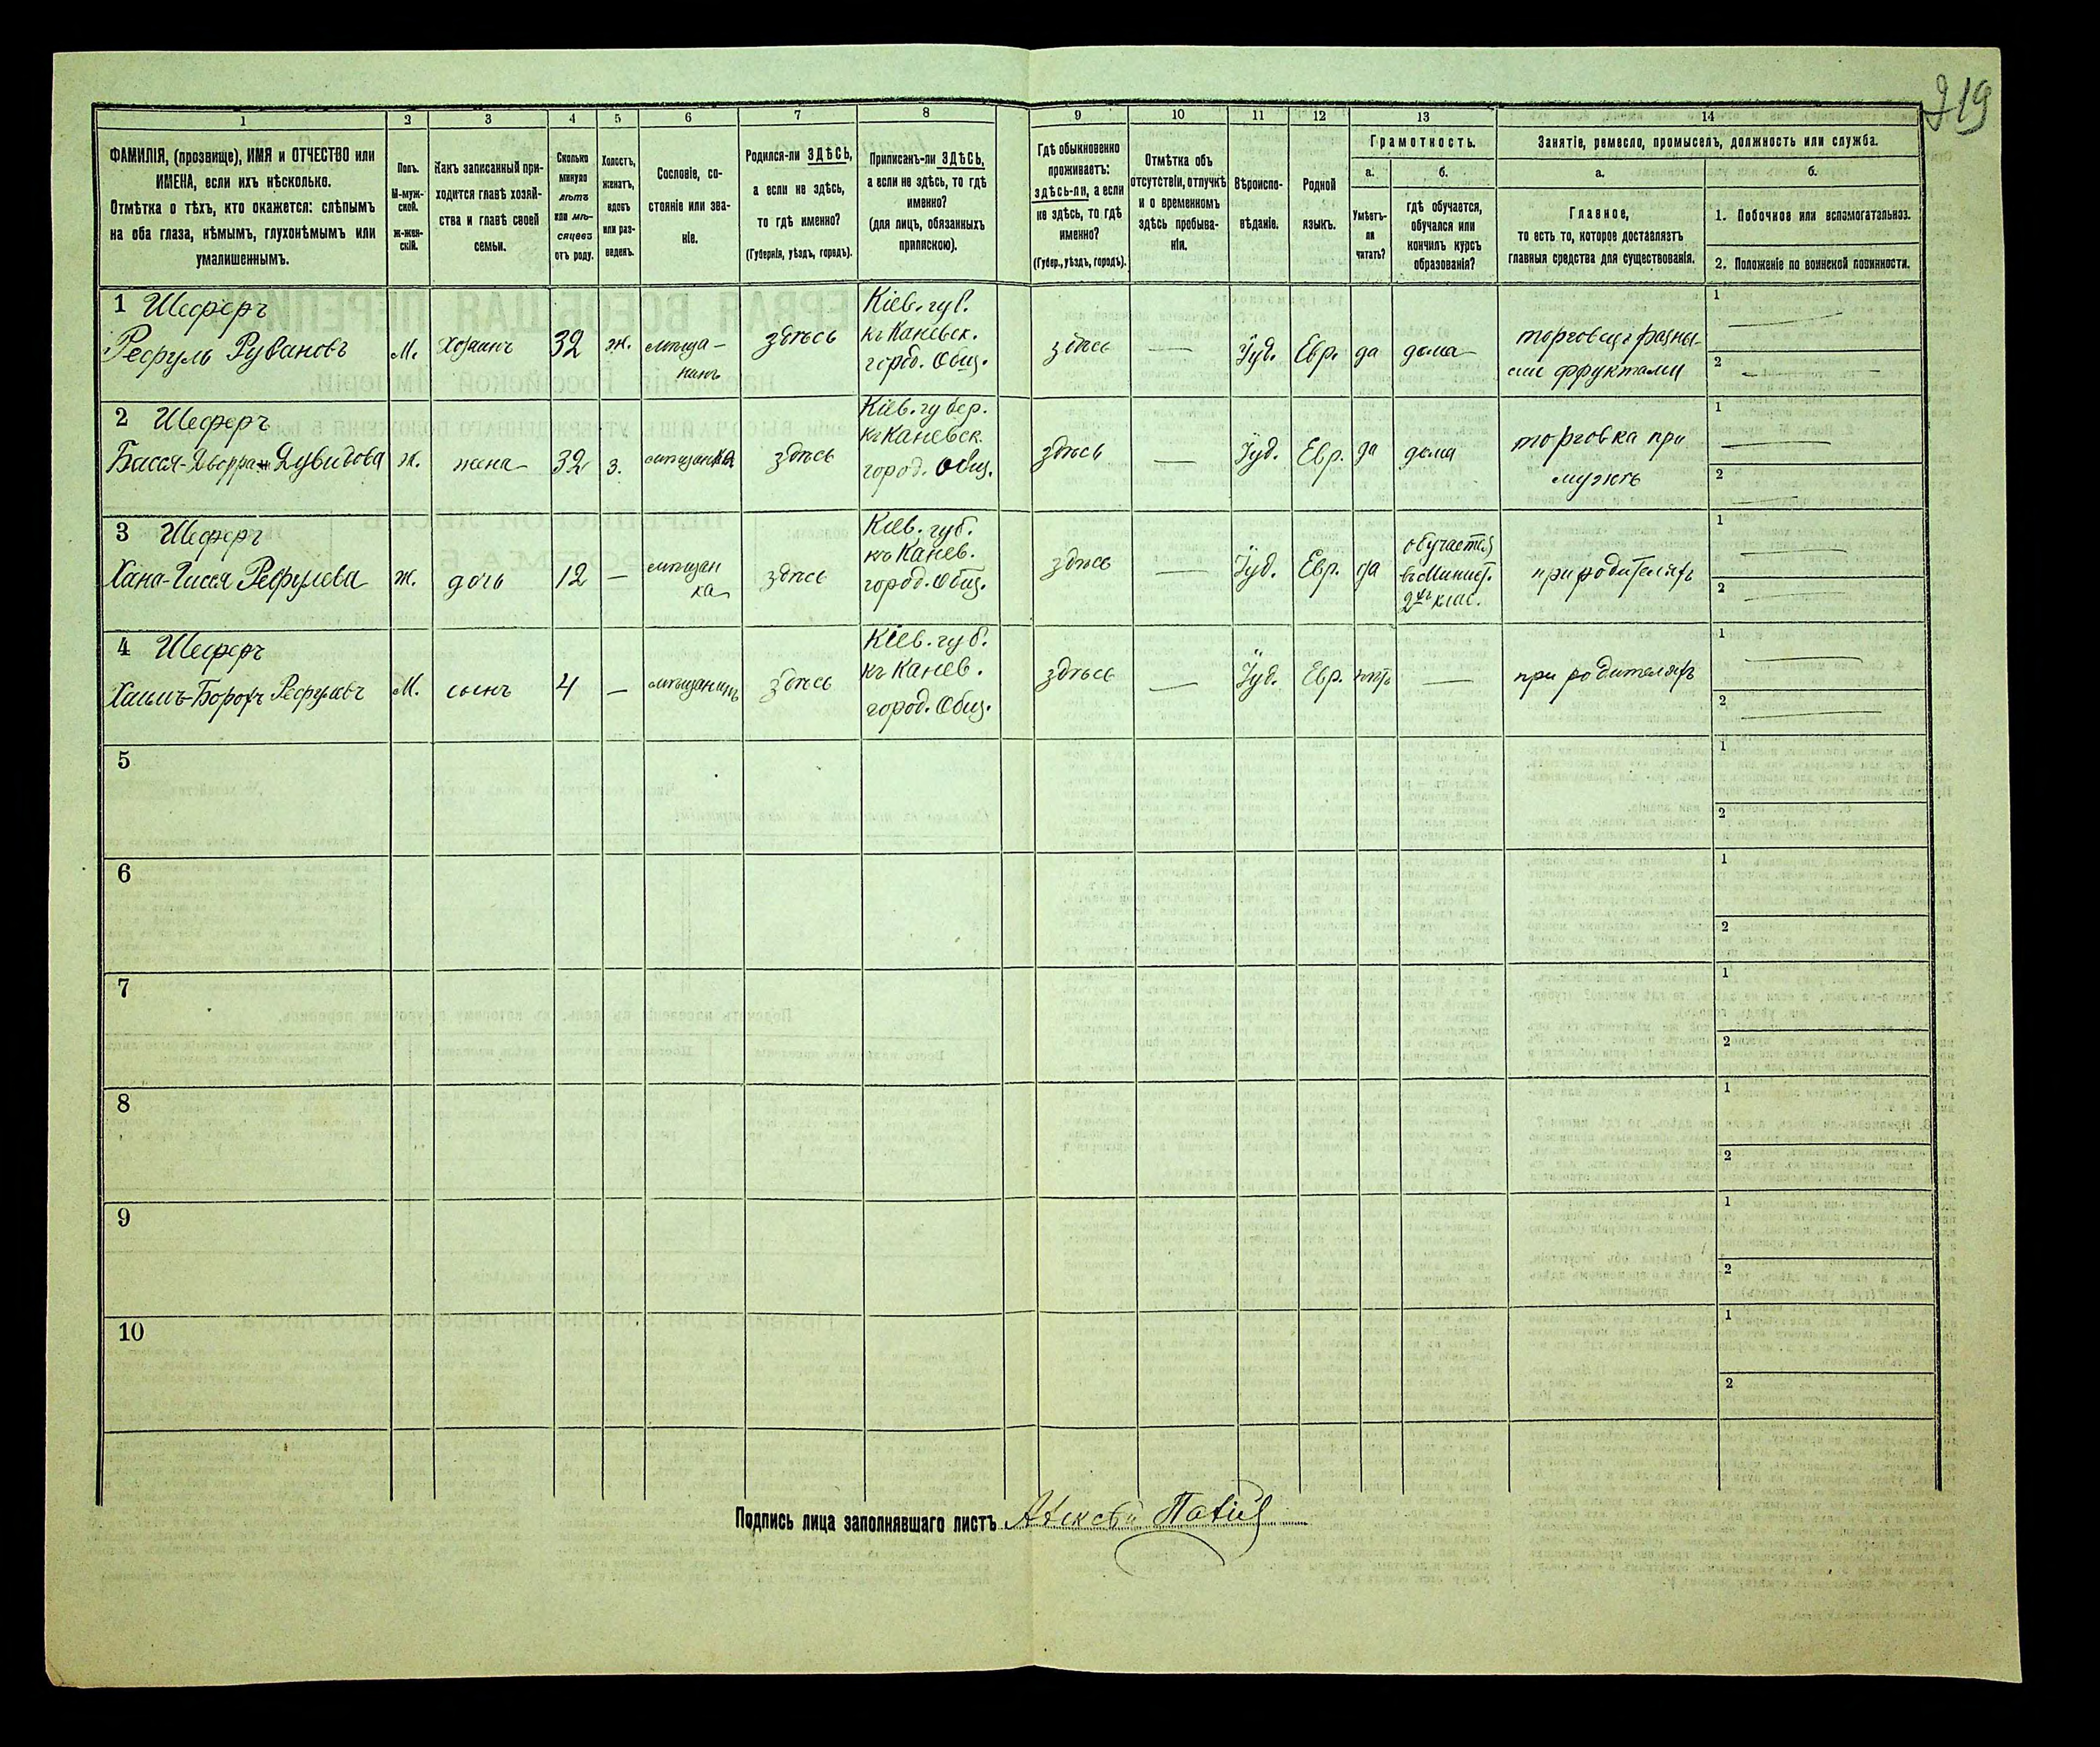 219
1 2 3 4 5 6 7 8 9 10 11 12 13 14
ФАМИЛІЯ, (прозвище), ИМЯ и ОТЧЕСТВО или
ИМЕНА, если ихъ нѣсколько.
Отмѣтка о тѣхъ, кто окажется: слѣпымъ
на оба глаза, нѣмымъ, глухонѣмымъ или
умалишеннымъ.
Полъ.
М-муж-
ской.
ж-жен-
скій.
Какъ записанный при-
ходится главѣ хозяй-
ства и главѣ своей
семьи.
Сколько
минуло
лѣтъ
или мѣ-
сяцевъ
отъ роду.
Холостъ,
женатъ,
вдовъ
или раз-
веденъ.
Сословіе, со-
стояніе или зва-
ніе.
Родился-ли ЗДѢСЬ,
а если не здѣсь,
то гдѣ именно?
(Губернія, уѣздъ, городъ).
Приписанъ-ли ЗДѢСЬ,
а если не здѣсь, то гдѣ
именно?
(для лицъ, обязанныхъ
припискою).
Гдѣ обыкновенно
проживаетъ:
здѣсь-ли, а если
не здѣсь, то гдѣ
именно?
(Губер., уѣздъ, городъ).
Отмѣтка объ
отсутствіи, отлучкѣ
и о временномъ
здѣсь пребыва-
ніи.
Вѣроиспо-
вѣданіе.
Родной
языкъ.
Грамотность.
а.
Умѣетъ-
ли
читать?
б.
гдѣ обучается,
обучался или
кончилъ курсъ
образованія?
Занятіе, ремесло, промыселъ, должность или служба.
а.
Главное,
то есть то, которое доставляетъ
главныя средства для существованія.
б.
1. Побочное или вспомогательное.
2. Положеніе по воинской повинности.
1 Шеферъ
Рефуль Рувановъ
М.
Хозяинъ
32
ж.
мѣща-
нинъ
здѣсь
Кіев. губ.
къ Каневск.
город. Общ.
здѣсь
—
Іуд.
Евр.
да
дома
торговецъ разны-
ми фруктами
1
2
2 Шеферъ
Бася-Двойра Дувидова
ж.
жена
32
з.
мѣщанка
здѣсь
Кіев. губер.
къ Каневск.
город. Общ.
здѣсь
—
Іуд.
Евр.
да
дома
торговка при
мужѣ
1
2
3 Шеферъ
Хана-Гися Рефулева
ж.
дочь
12
—
мѣщан
ка
здѣсь
Кіев. губ.
къ Канев.
город. Общ.
здѣсь
—
Іуд.
Евр.
да
обучается
въ Минист.
2хъ клас.
при родителяхъ
1
2
4 Шеферъ
Хаимъ-Борохъ Рефулевъ
М.
сынъ
4
—
мѣщанинъ
здѣсь
Кіев. губ.
къ Канев.
город. Общ.
здѣсь
—
Іуд.
Евр.
нѣтъ
—
при родителяхъ
1
2
5
1
2
6
1
2
7
1
2
8
1
2
9
1
2
10
1
2
Подпись лица заполнявшаго листъ